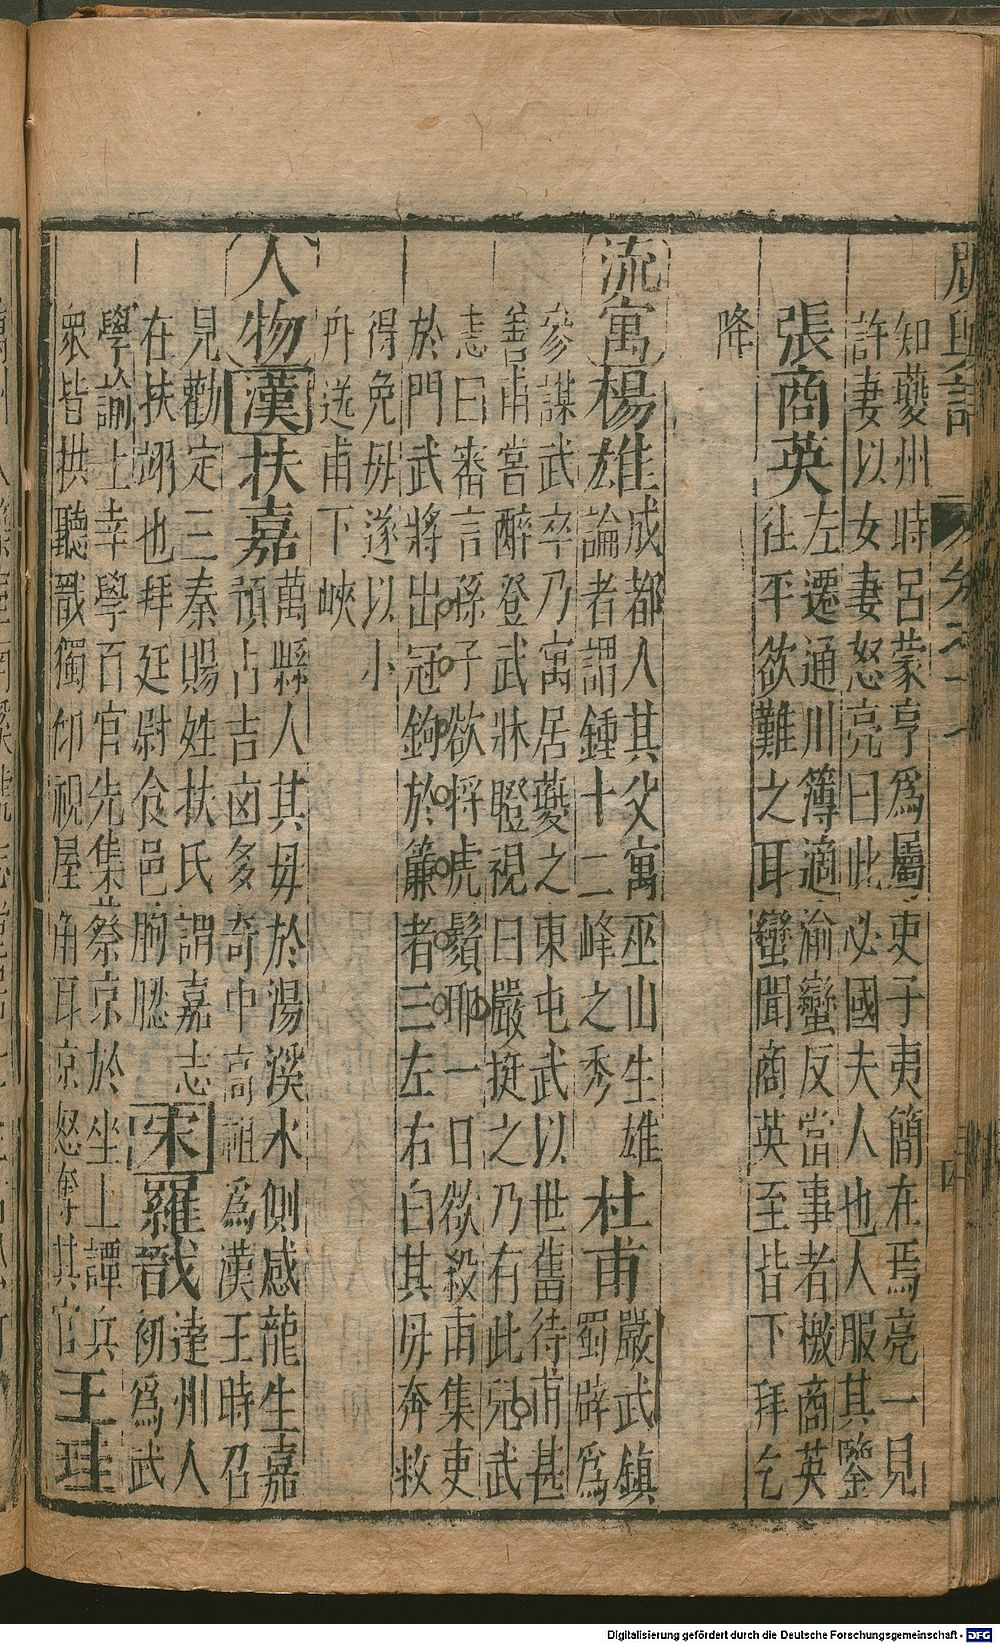 知夔州時呂蒙亨爲屬吏子夷簡在焉亮一見
許妻以女妻怒亮曰此必國夫人也人服其鑒
張商英左遷通川簿適渝蠻反當事者檄商英
往平欲難之耳蠻聞商英至皆下拜乞
降
流寓楊雄成都人其父寓巫山生雄
論者謂鍾十二峰之秀
杜甫嚴武鎮
蜀辟爲
參謀武卒乃寓居夔之東屯武以世舊待甫甚
善甫嘗醉登武牀瞪視曰嚴挺之乃有此兒武
恚曰審言孫子欲捋虎鬚耶一日欲殺甫集吏
於門武將出冠鉤於簾者三左右白其毋奔救
得免毋遂以小
舟送甫下峽
人物漢扶嘉萬縣人其毋於湯溪水側感龍生嘉
預占吉凶多奇中高祖爲漢王時召
見勸定三秦賜姓扶氏謂嘉志
在扶翊也拜廷尉食邑朐䏰
宋羅戠達州人
初爲武
學諭上幸學百官先集蔡京於坐上譚兵
衆皆拱聽戠獨仰視屋角耳京怒奪其官
王珪
Digitalisierung gefördert durch die Deutsche Forschungsgemeinschaft - DFG